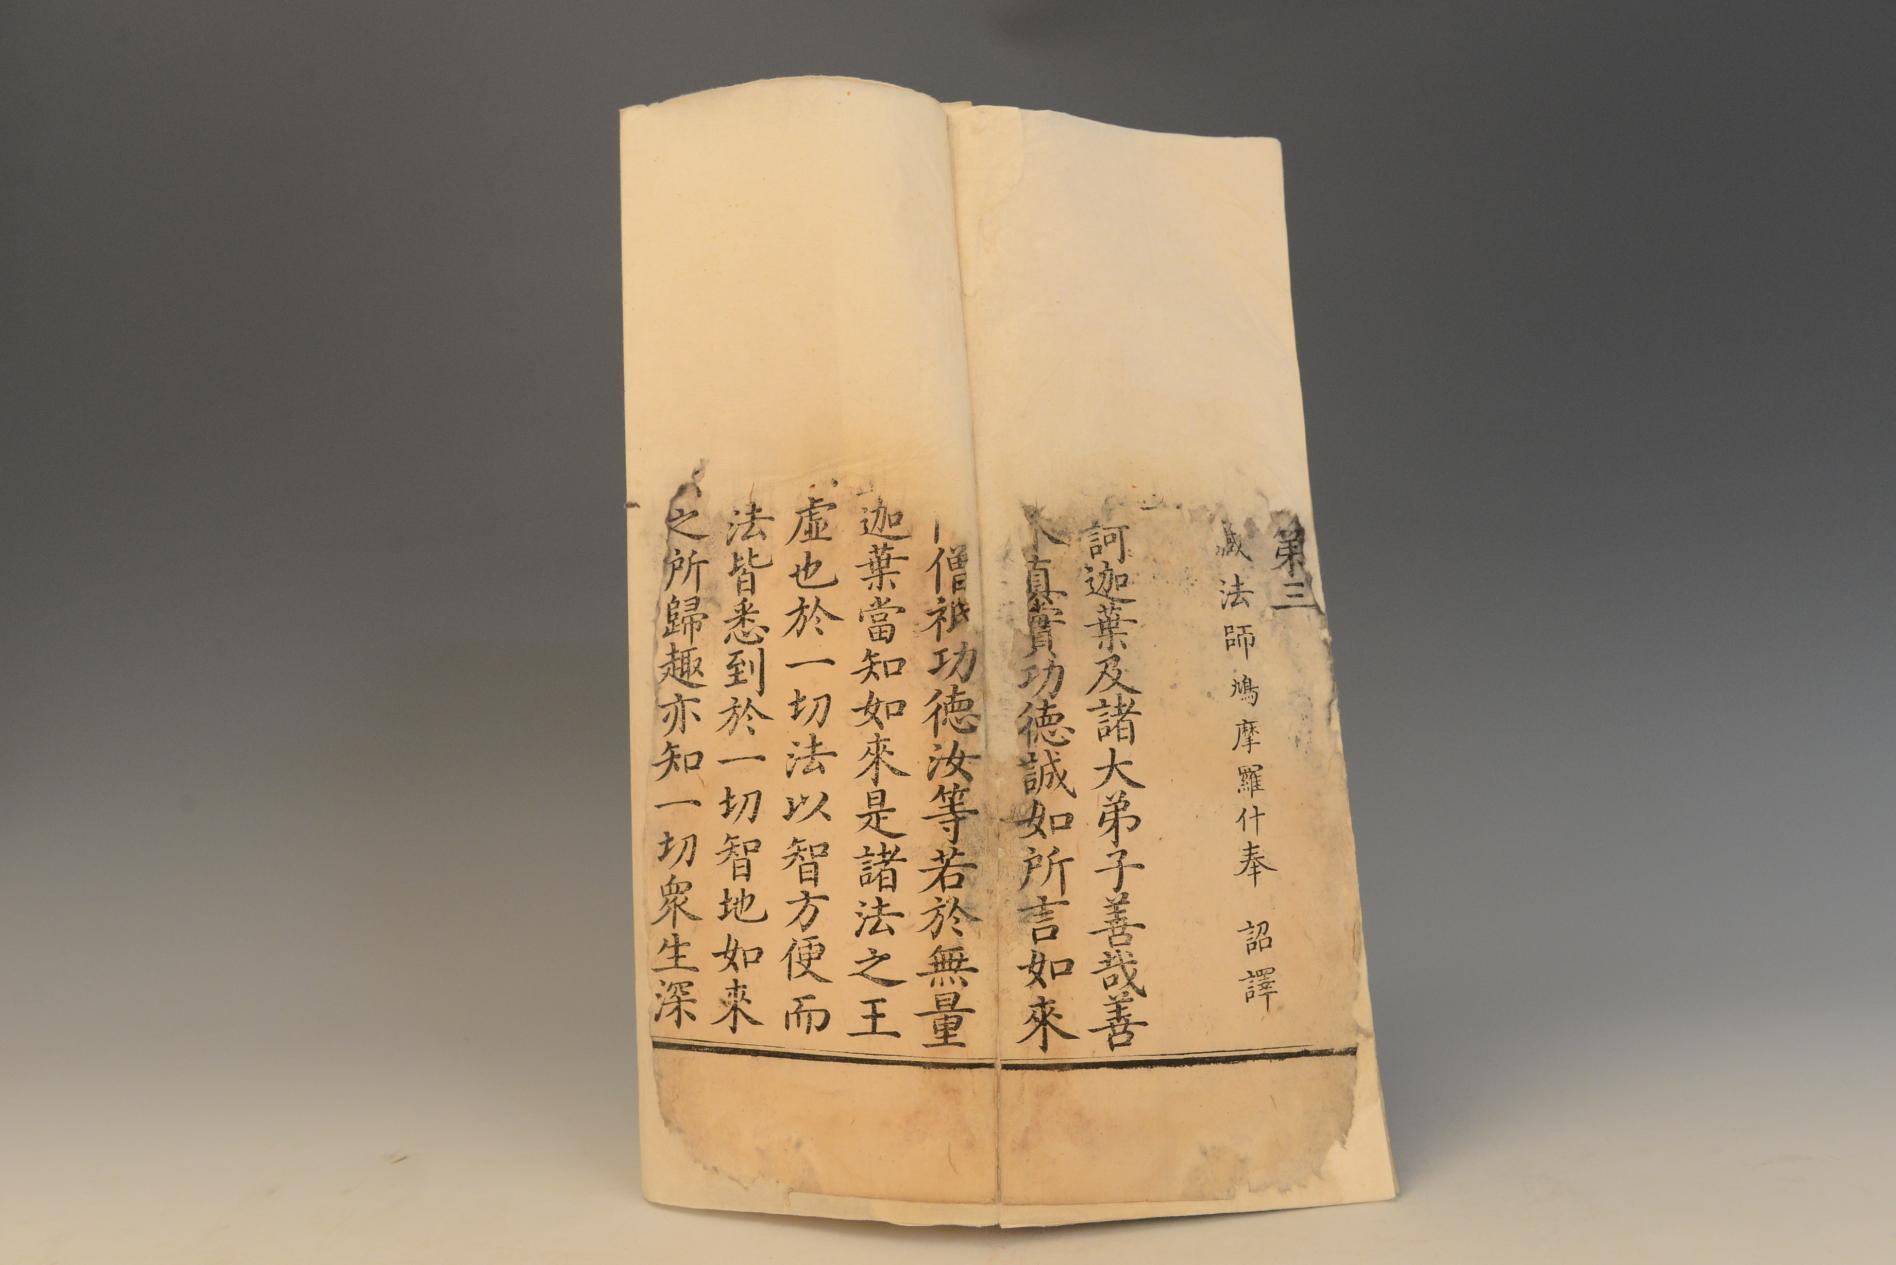 第三
藏法師鳩摩羅什奉 詔譯
訶迦葉及諸大弟子善哉善
來真實功德誠如所言如來
僧祇功德汝等若於無量
迦葉當知如來是諸法之王
虛也於一切法以智方便而
法皆悉到於一切智地如来
之所歸趣亦知一切眾生深